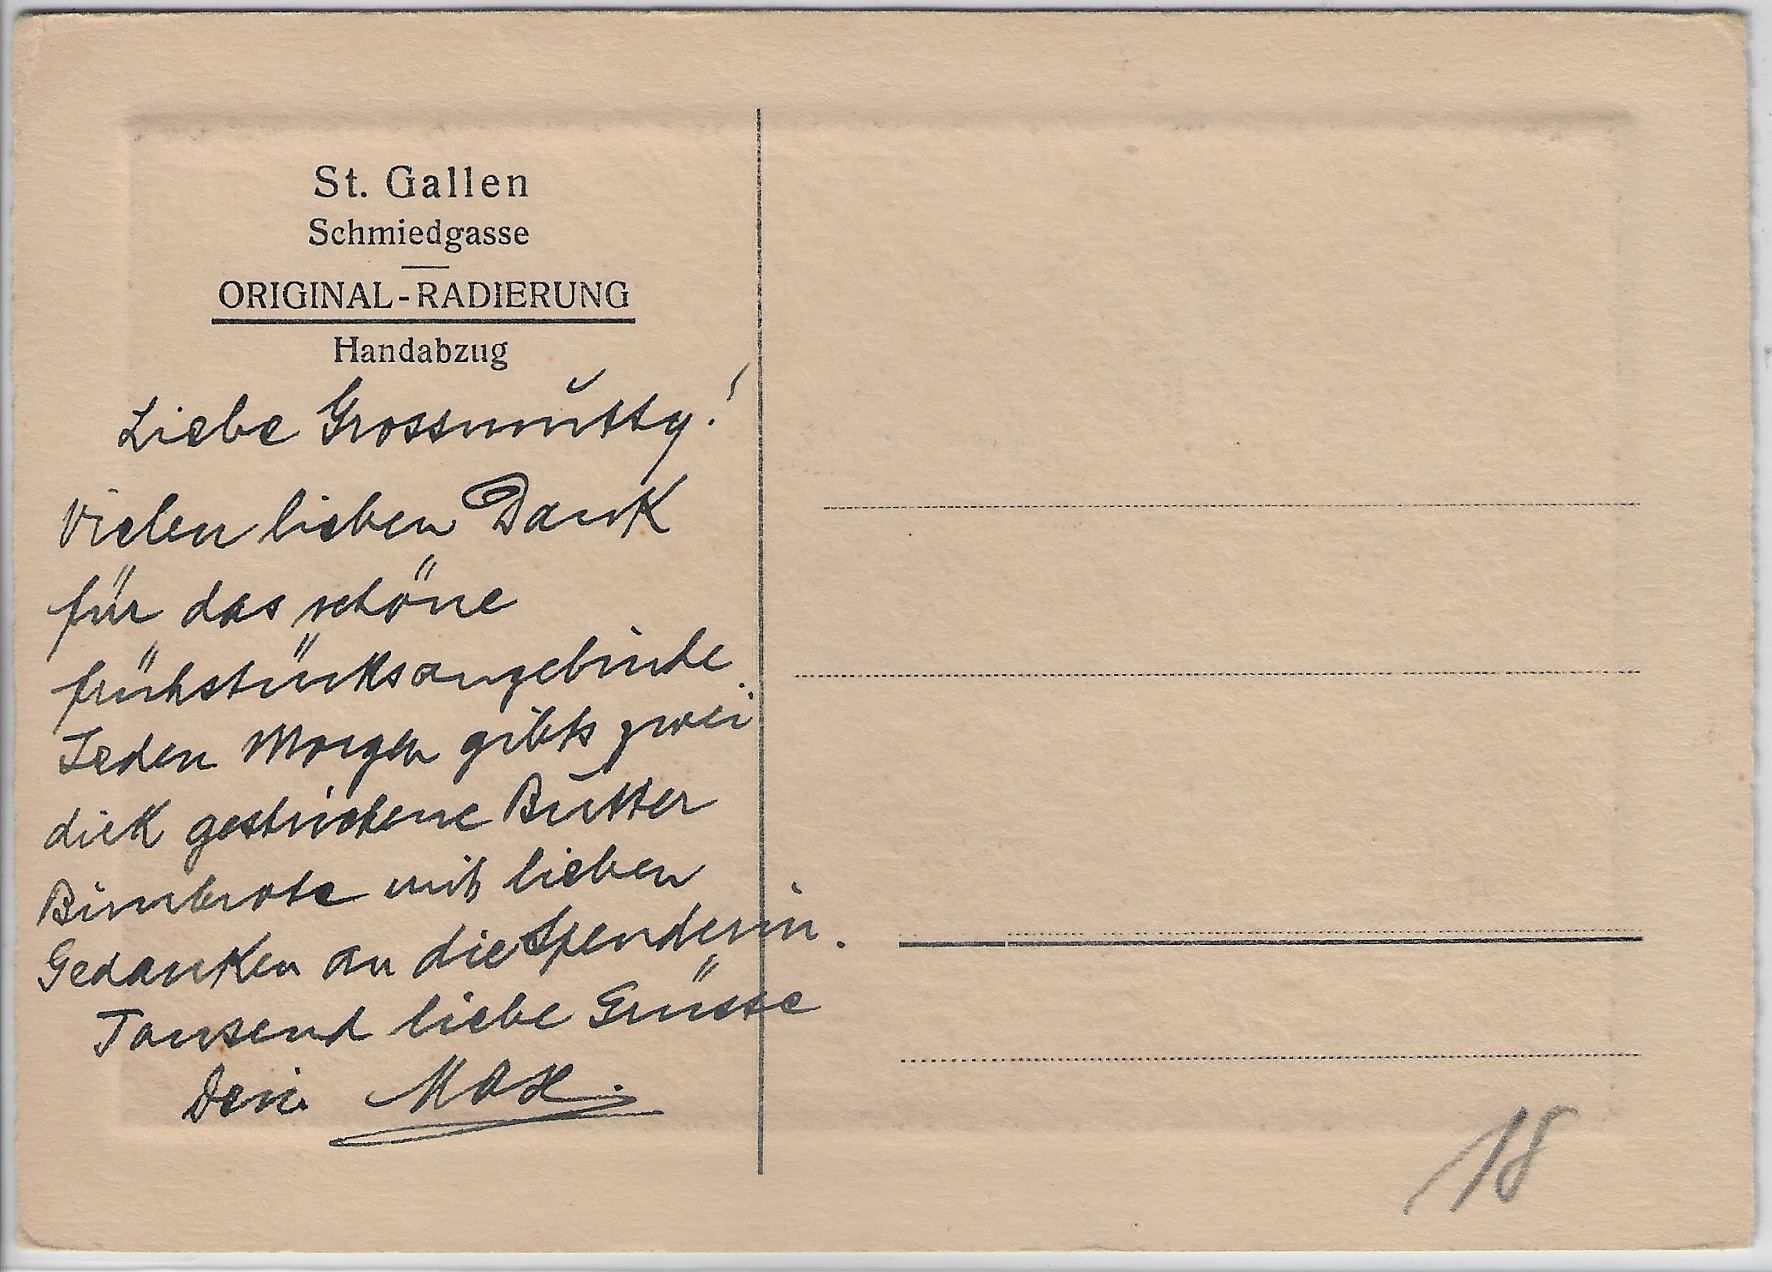 St. Gallen
Schmiedgasse
ORIGINAL-RADIERUNG
Handabzug
Liebe Grossmutty!
Vielen lieben Dank
für das schöne
frühstücksangebinde.
Jeden Morgen gibts zwei
dick gestrichene Butter
Birnbrote mit lieben
Gedanken an die Spenderin.
Tausend liebe Grüsse
Dein Max.
18